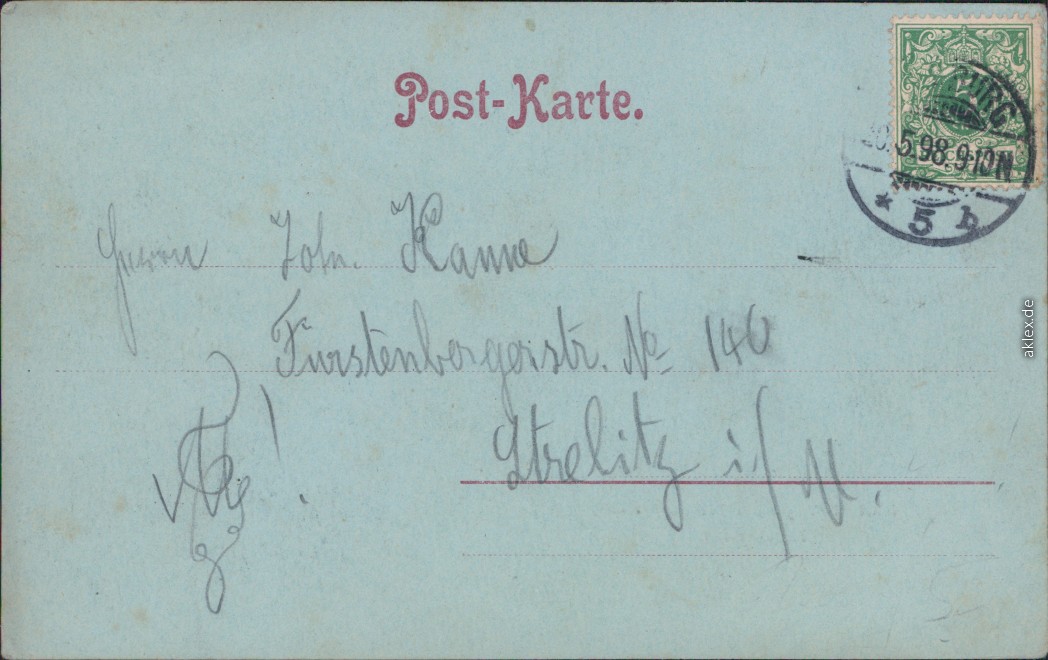 Post-Karte.
BURG
5.98.9-10N
* 5 b
Herrn Joh. Kanne
Furstenbergerstr. No 140
Strelitz i/M.
aklex.de